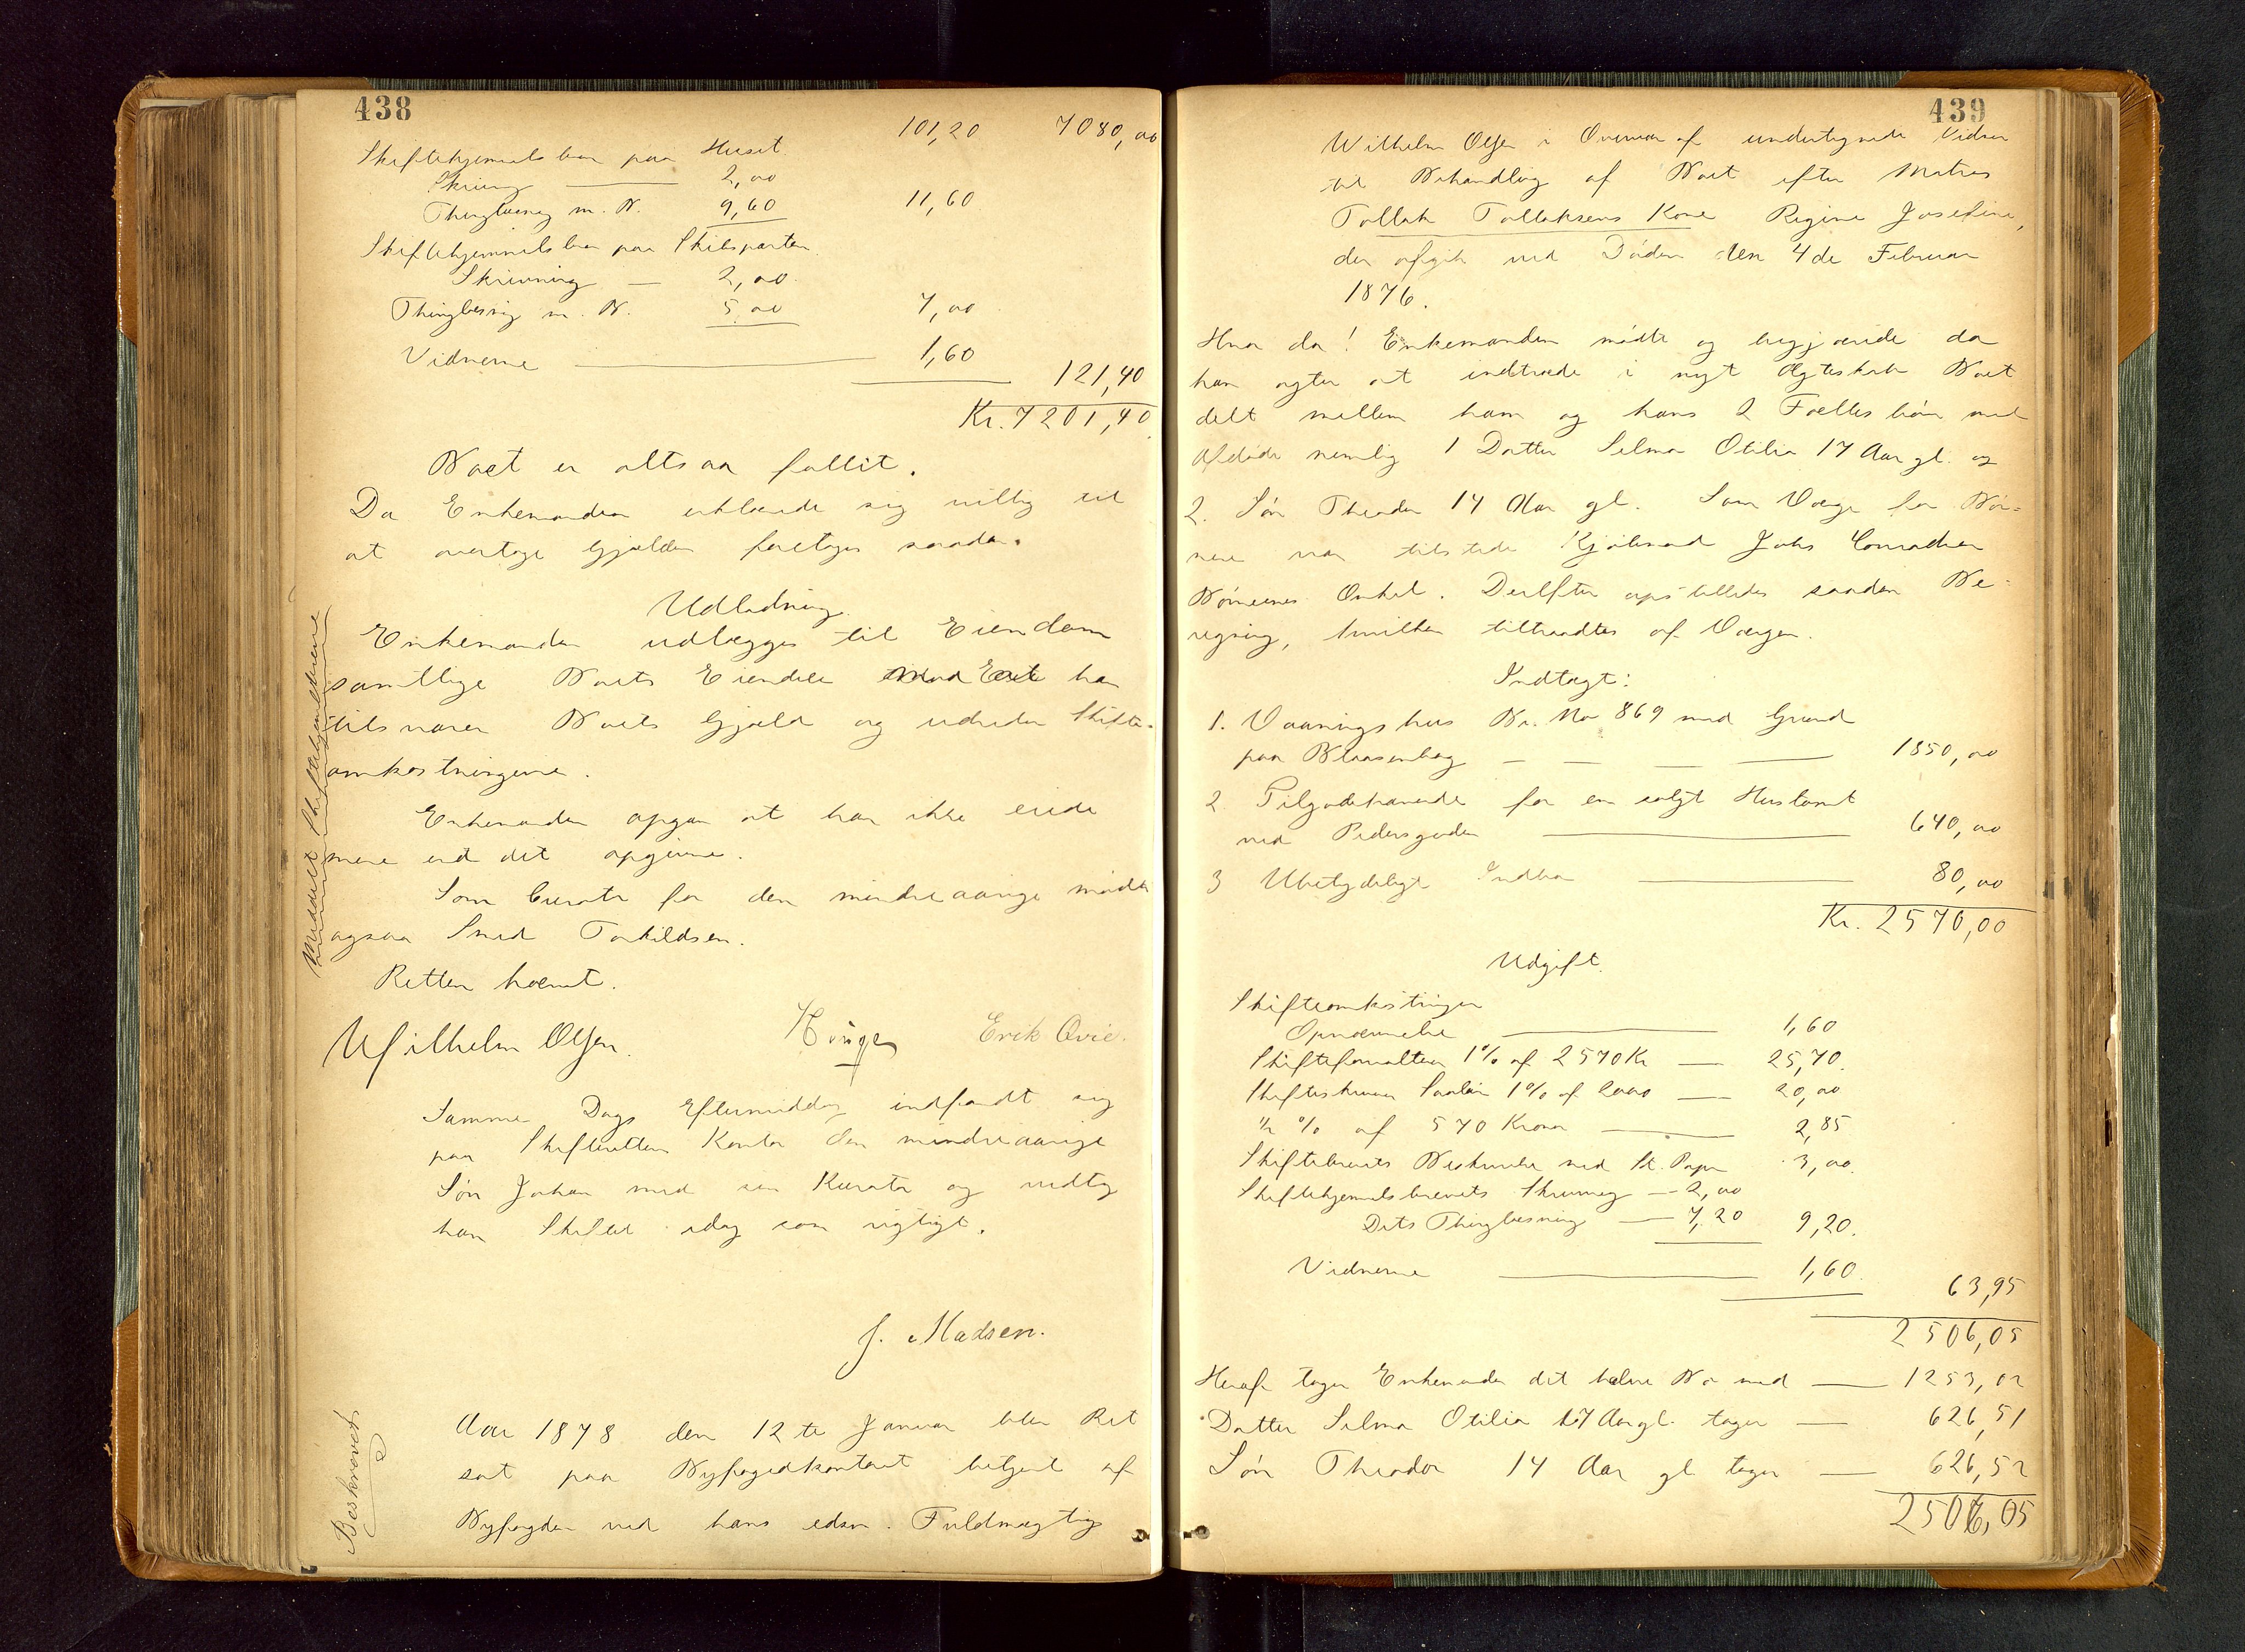 438
101,20 7080,00
Skiftehjemmelsbrev paa Huset
Skrivng 2,00
Thinglæsng m. B. 9,60 11,60
Skiftehjemmelsbrev paa Skibsparten
Skrivning 2,00
Thinglæsnig m. B. 5,00 7,00
Vidnerne 1,60
121,40
Kr. 7201,40
Boet er altsaa fallit.
Da Enkemanden erklærede sig villig til
at overtage Gjælden foretoges saadan
Udlodning.
Enkemanden udlægges til Eiendom
samtlige Boets Eiendele mod at han
tilsvarer Boets Gjæld og udreder Skifte-
omkostningerne.
Enkemanden opgav at han ikke eiede
mere end det opgivne.
Som Curator for den mindreaarige mødte
ogsaa Smed Torkildsen.
Retten hævet.
Wilhelm Olsen. Erik Qvie.
Samme Dags Eftermiddag indfandt sig
paa Skifterettens Kontor den mindreaarige
Søn Johan med sin Kurator og vedtog
han Skiftet idag som rigtigt.
J. Madsen.
Aar 1878 den 12te Januar blev Ret
sat paa Byfogedkontoret betjent af
Byfogden ved hans edsv. Fuldmægtig
Meddelt Skiftehjemlerne
Beskrevet
439
Wilhelm Olsen i Overvær af undertegnede Vidner
til Behandling af Boet efter Matros
Tollak Tollaksens Kone Regine Josefine,
der afgik ved Døden den 4de Februar
1876.
Hvor da! Enkemanden mødte og begjærede da
han agter at indtræde i nyt Ægteskab Boet
delt mellem ham og hans 2 Fællesbørn med
Afdøde nemlig 1 Datter Selma Otilia 17 Aar gl. og
2. Søn Theodor 14 Aar gl. Som Værge for Bør-
nene var tilstede Kjøbmand Johs Conradsen
Børnenes Onkel. Derefter opstilledes saadan Be-
regning, hvilken tiltraadtes af Værgen.
Indtægt:
1. Vaaningshus Br. No 869 med Grund
paa Blaasenborg 1850,00
2. Tilgodehavende for en solgt Hustomt
ved Pedersgaden 640,00
3 Ubetydeligt Indbo 80,00
Kr. 2570,00
Udgift.
Skifteomkostninger
Opnævnelse 1,60
Skifteforvalteren 1% af 2570 Kr 25,70.
Skifteskriver Salær 1% af 2000 20,00
½ % af 570 Kroner 2,85
Skiftebrevets Beskrivelse med St. Papir 3,00.
Skiftehjemmelsbrevets Skrivning 2,00
Dets Thinglæsning 7,20 9,20.
Vidnerne 1,60.
63,95
2506,05
Heraf tager Enkemanden det halve Bo med 1253,02
Datter Selma Otilia 17 Aar gl. tager 626,51
Søn Theodor 14 Aar gl tager 626,52
2506,05